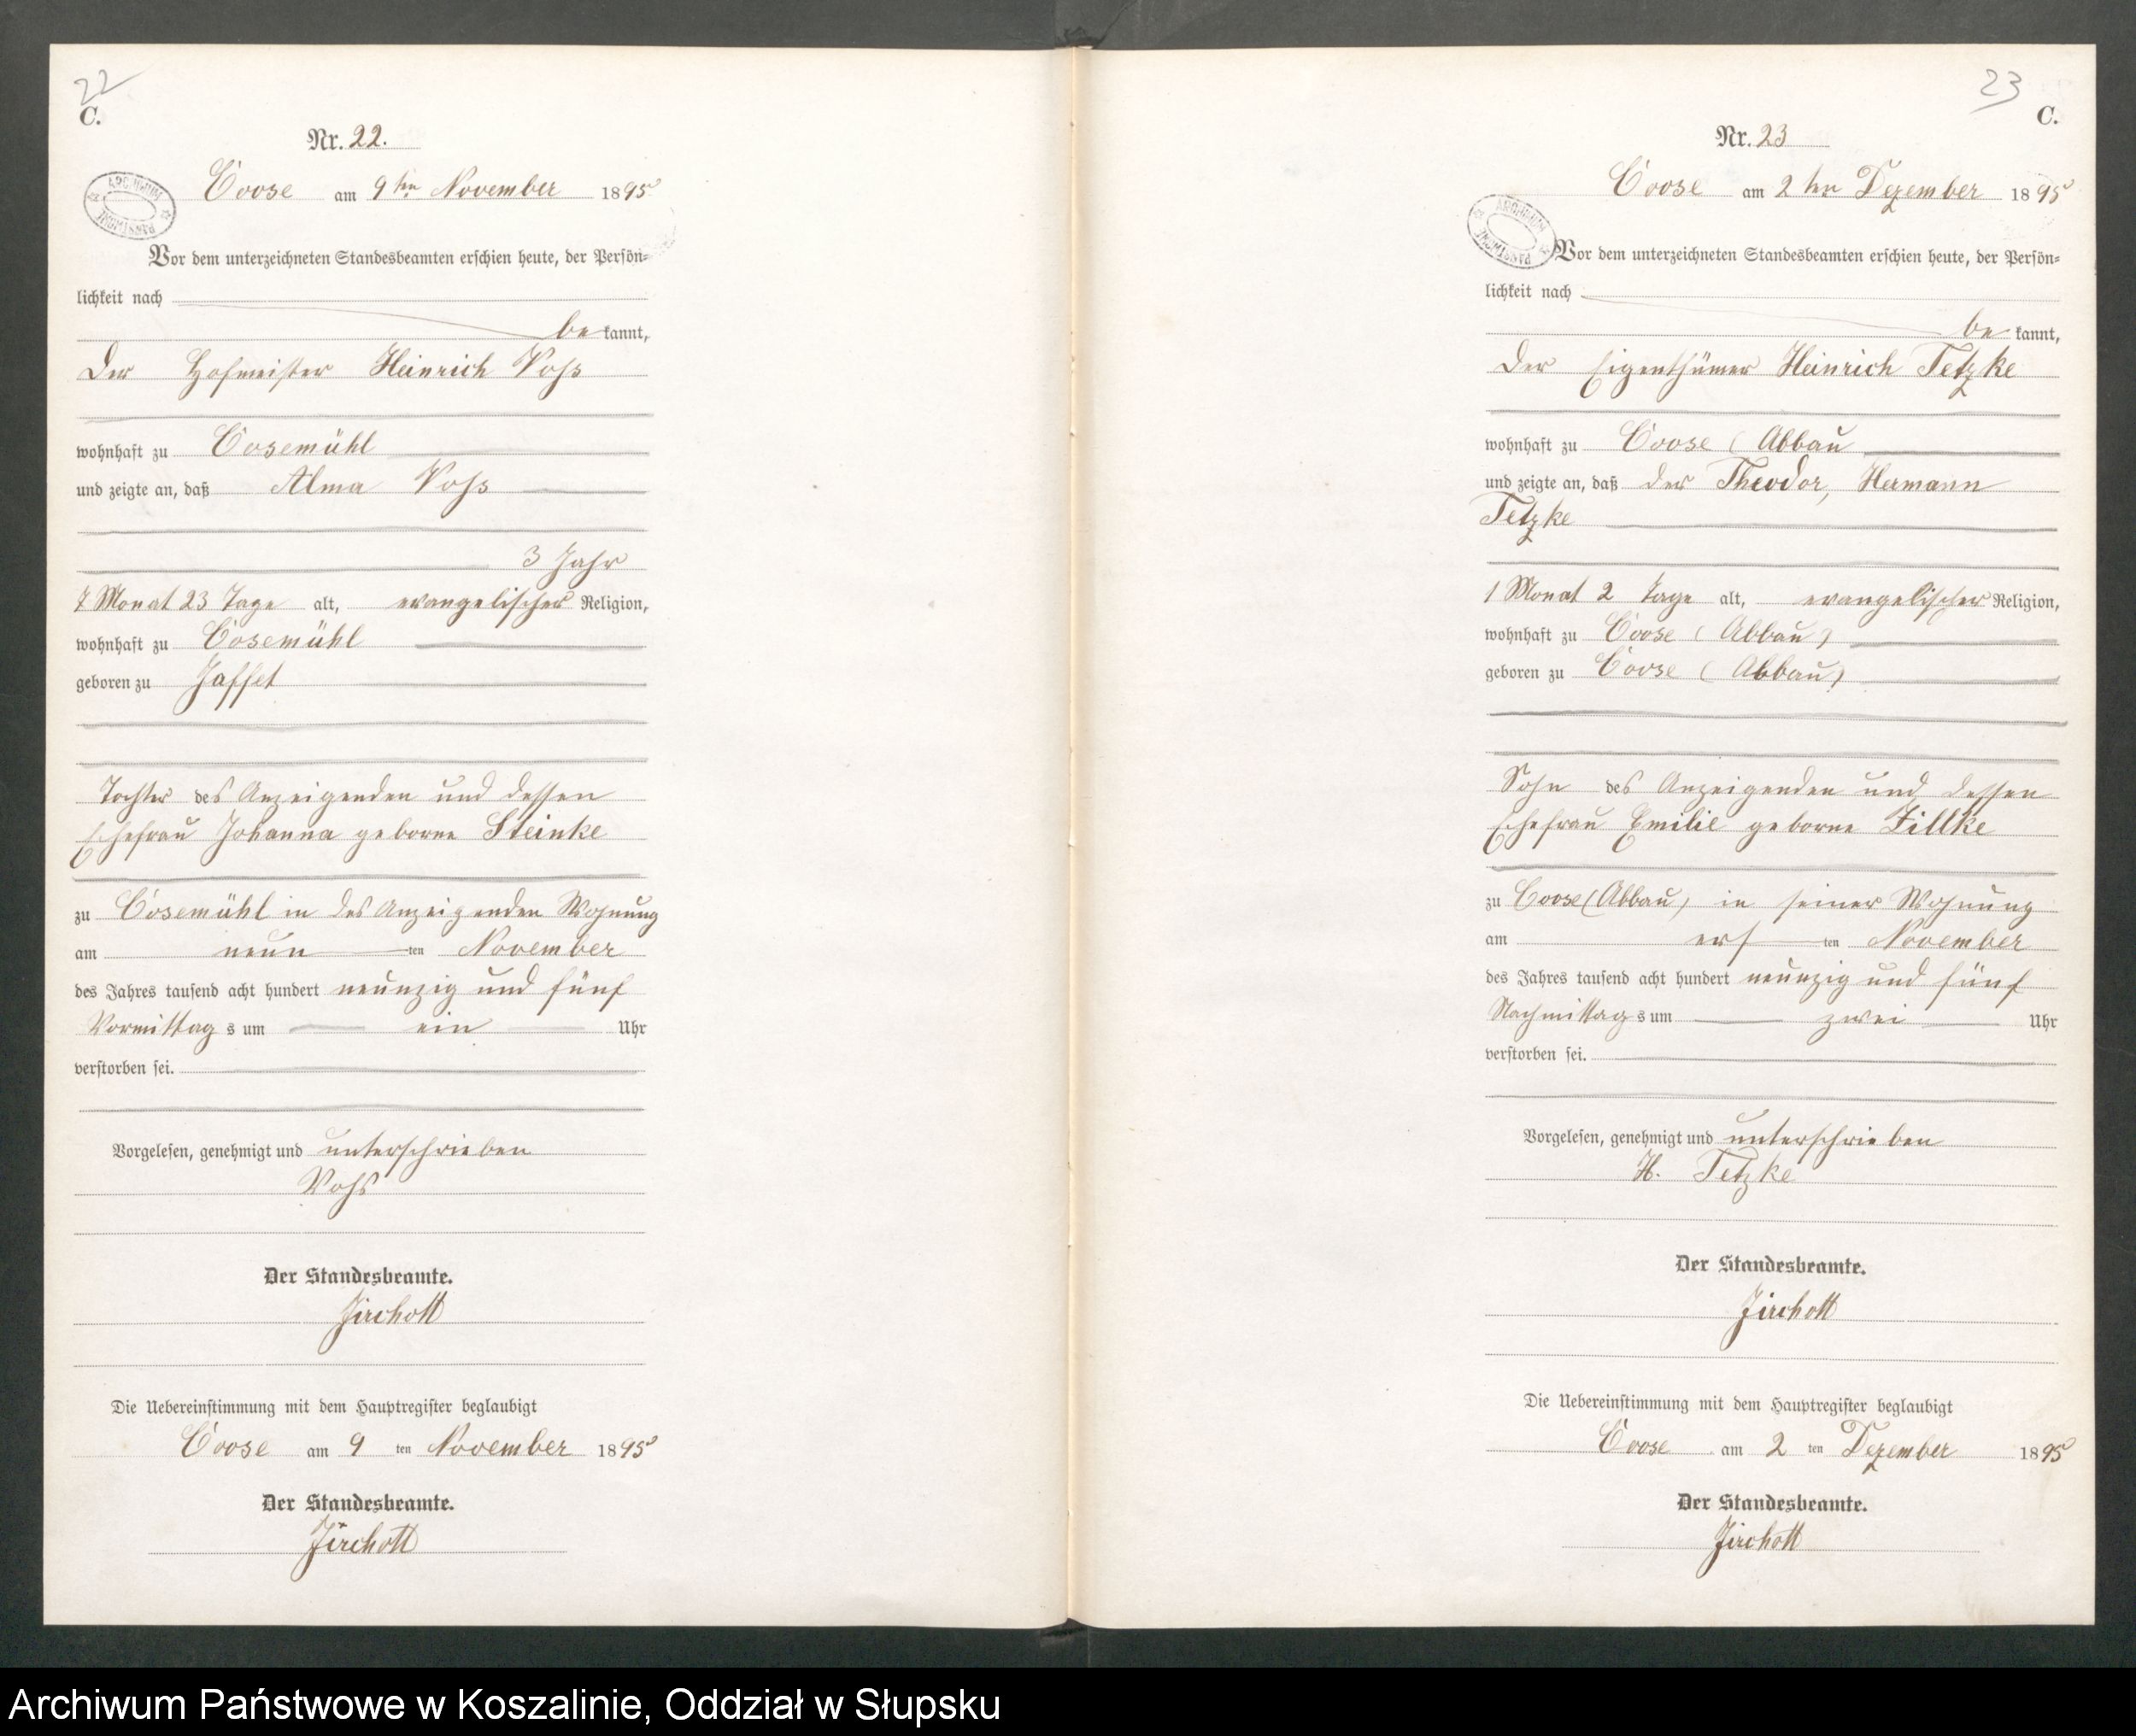 22
C.
Nr. 22.
Coose am 9ten November 1895
ARCHIWUM PAŃSTWOWE
Vor dem unterzeichneten Standesbeamten erschien heute, der Persön-
lichkeit nach
be kannt,
Der Hofmeister Heinrich Vohs
wohnhaft zu Cosemühl
und zeigte an, daß Alma Vohs
3 Jahr
7 Monat 23 Tage alt, evangelischer Religion,
wohnhaft zu Cosemühl
geboren zu
Tochter des Anzeigenden und dessen
Ehefrau Johanna geborne Steinke
zu Cosemühl in des Anzeigenden Wohnung
am neun ten November
des Jahres tausend acht hundert neunzig und fünf
Vormittag s um ein Uhr
verstorben sei.
Vorgelesen, genehmigt und unterschrieben
Vohs
Der Standesbeamte.
Jirchott
Die Uebereinstimmung mit dem Hauptregister beglaubigt
Coose am 9 ten November 1895
Der Standesbeamte.
Jirchott
23
C.
Nr. 23
Coose am 2ten Dezember 1895
ARCHIWUM PAŃSTWOWE
Vor dem unterzeichneten Standesbeamten erschien heute, der Persön-
lichkeit nach
be kannt,
Der Eigenthümer Heinrich Tetzke
wohnhaft zu Coose (Abbau
und zeigte an, daß der Theodor, Hermann
Tetzke
1 Monat 2 Tage alt, evangelischer Religion,
wohnhaft zu Coose (Abbau)
geboren zu Coose (Abbau)
Sohn des Anzeigenden und dessen
Ehefrau Emilie geborne Zillke
zu Coose (Abbau) in seiner Wohnung
am ers ten November
des Jahres tausend acht hundert neunzig und fünf
Nachmittag s um zwei Uhr
verstorben sei.
Vorgelesen, genehmigt und unterschrieben
H. Tetzke
Der Standesbeamte.
Jirchott
Die Uebereinstimmung mit dem Hauptregister beglaubigt
Coose am 2 ten Dezember 1895
Der Standesbeamte.
Jirchott
Archiwum Państwowe w Koszalinie, Oddział w Słupsku